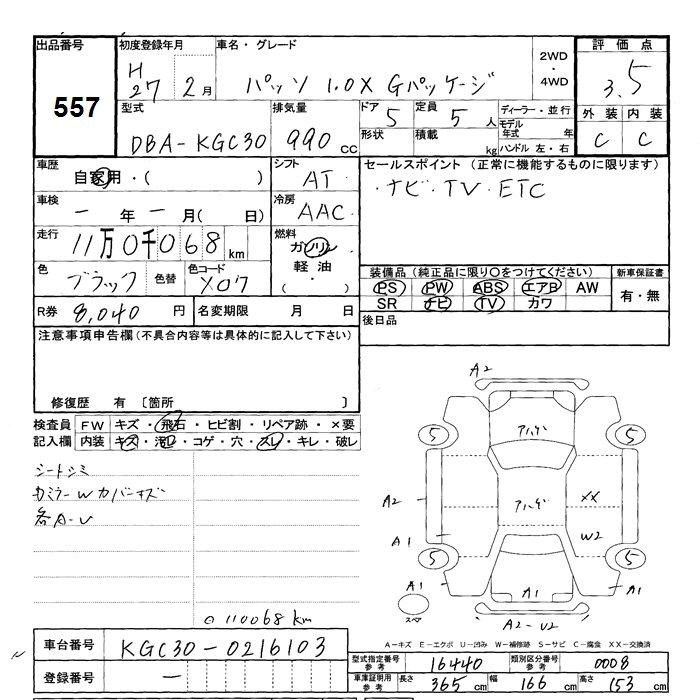 出品番号
557
初度登録年月
H
27 2月
車名・グレード
パッソ 1.0X Gパッケージ
2WD
・
4WD
評価点
3.5
外装 内装
C C
型式
DBA-KGC30
排気量
990 cc
ドア
5
定員
5 人
形状
積載
kg
ディーラー・並行
モデル
年式 年
ハンドル 左・右
車歴
自家用・( )
シフト
AT
セールスポイント (正常に機能するものに限ります)
・ナビ・TV・ETC
車検
ー 年 ー 月( 日)
冷房
AAC
走行
11万0千068 km
燃料
ガソリン
軽油
( ・ )
色
ブラック
色替
色コード
X07
装備品 (純正品に限り○をつけてください)
PS PW ABS エアB AW
SR ナビ TV カワ
新車保証書
有・無
R券 8,040 円
名変期限 月 日
後日品
注意事項申告欄 (不具合内容等は具体的に記入して下さい)
修復歴 有 〔箇所 〕
検査員
記入欄
FW キズ・飛石・ヒビ割・リペア跡・×要
内装 キズ・汚レ・コゲ・穴・スレ・キレ・破レ
シートシミ
カミラーWカバーキズ
各A-U
○110068km
A2
5 アハゲ 5
A2 アハゲ XX A2
A1 W2
5 5
A1 A1 A1
スペア
A2-U2
A-キズ E-エクボ U-凹み W-補修跡 S-サビ C-腐食 XX-交換済
車台番号 KGC30-0216103
登録番号 ー
型式指定番号
参考
16440
類別区分番号
参考
0008
車庫証明用
参考
長さ 365 cm 幅 166 cm 高さ 153 cm